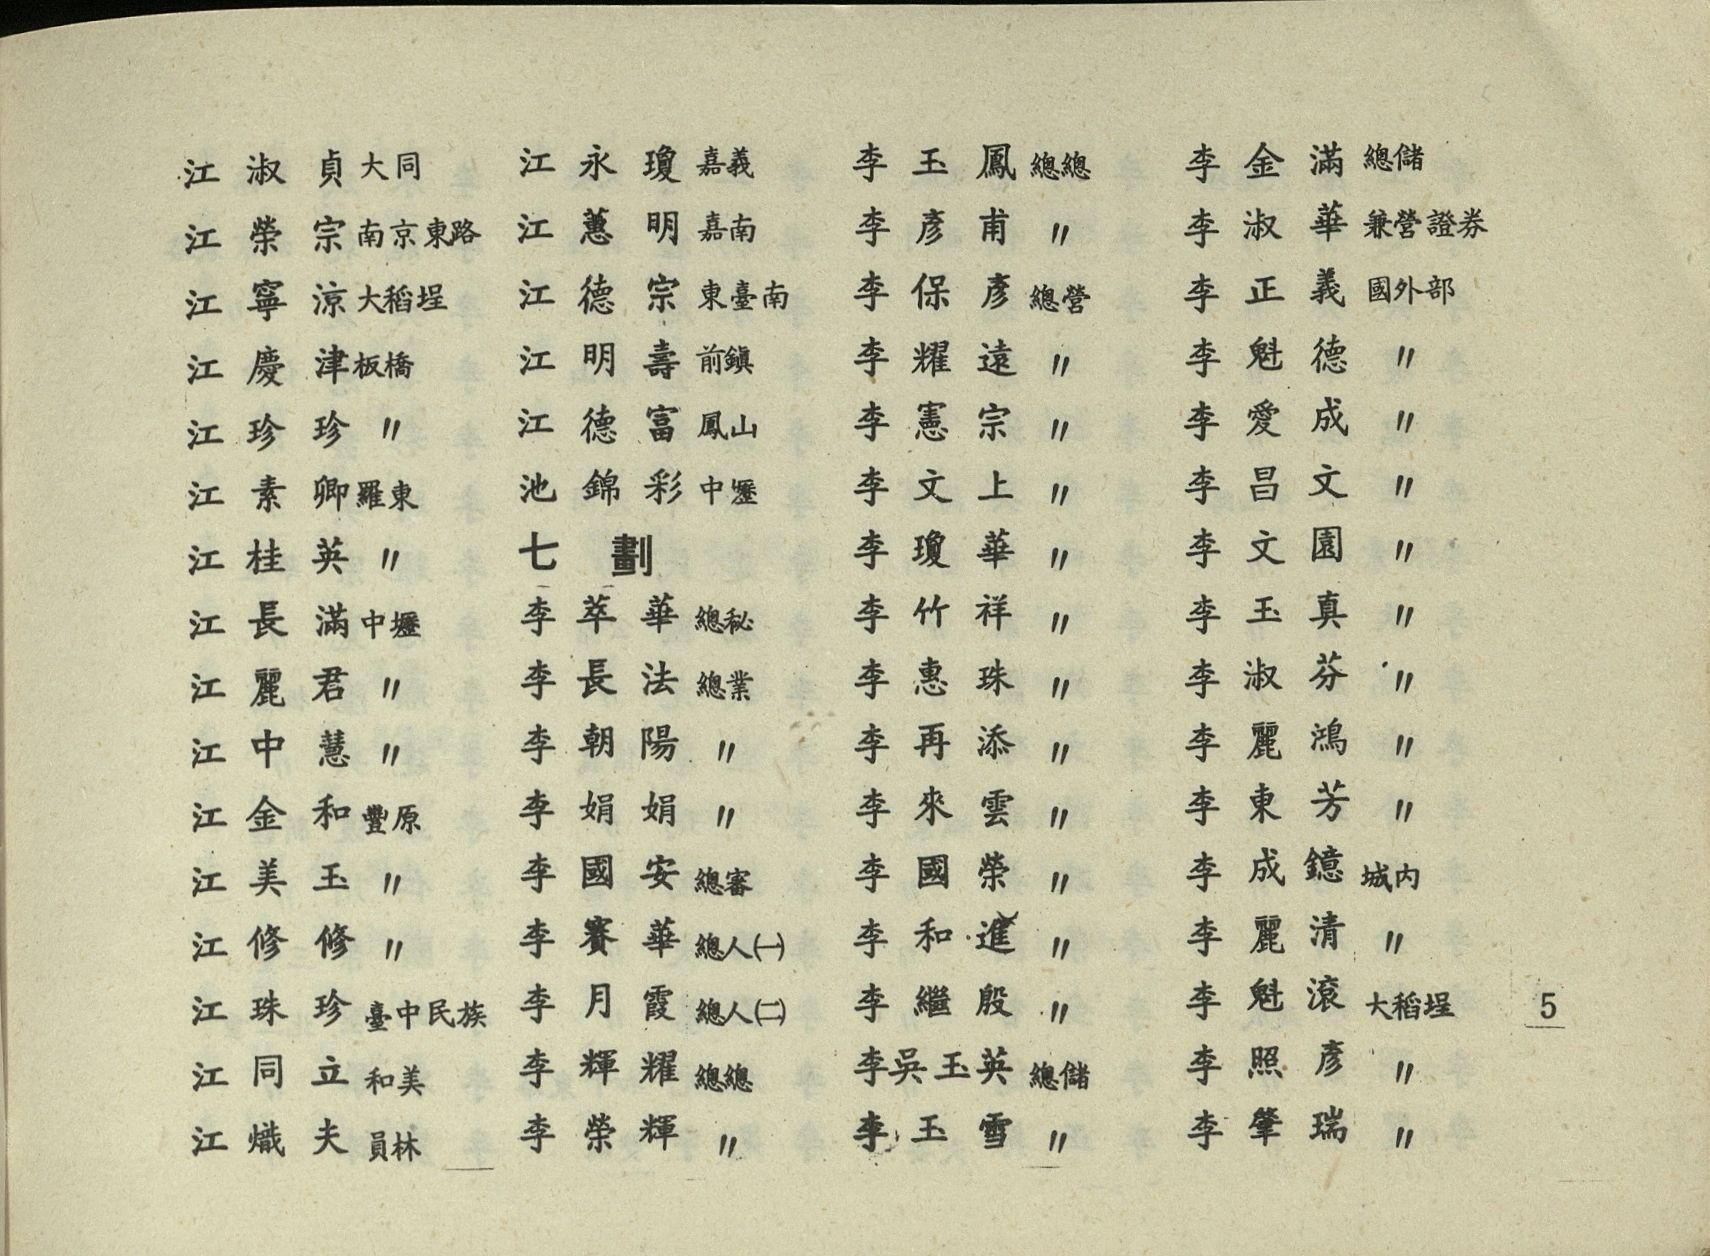 江淑貞 大同
江榮宗 南京東路
江寧涼 大稻埕
江慶津 板橋
江珍珍 〃
江素卿 羅東
江桂英 〃
江長滿 中壢
江麗君 〃
江中慧 〃
江金和 豐原
江美玉 〃
江修修 〃
江珠珍 臺中民族
江同立 和美
江熾夫 員林
江永瓊 嘉義
江蕙明 嘉南
江德宗 東臺南
江明壽 前鎮
江德富 鳳山
池錦彩 中壢
七劃
李萃華 總秘
李長法 總業
李朝陽 〃
李娟娟 〃
李國安 總審
李賽華 總人㈠
李月霞 總人㈡
李輝耀 總總
李榮輝 〃
李玉鳳 總總
李彥甫 〃
李保彥 總營
李耀遠 〃
李憲宗 〃
李文上 〃
李瓊華 〃
李竹祥 〃
李惠珠 〃
李再添 〃
李來雲 〃
李國榮 〃
李和進 〃
李繼殷 〃
李吳玉英 總儲
李玉雪 〃
李金滿 總儲
李淑華 兼營證券
李正義 國外部
李魁德 〃
李愛成 〃
李昌文 〃
李文園 〃
李玉真 〃
李淑芬 〃
李麗鴻 〃
李東芳 〃
李成鐿 城內
李麗清 〃
李魁滾 大稻埕
李照彥 〃
李肇瑞 〃
5